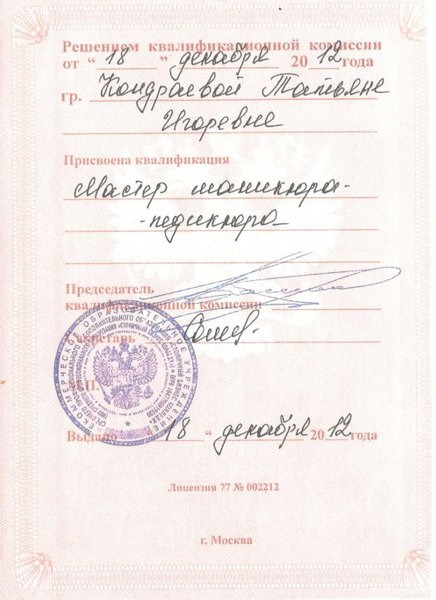 Решением квалификационной комиссии
от “ 18 ” декабря 2012 года
гр. Кондраевой Татьяне
Игоревне
Присвоена квалификация
Мастер маникюра-
-педикюра
Председатель
квалификационной комиссии
Секретарь
М.П.
Выдано 18 “ декабря 2012 года
Лицензия 77 № 002212
г. Москва